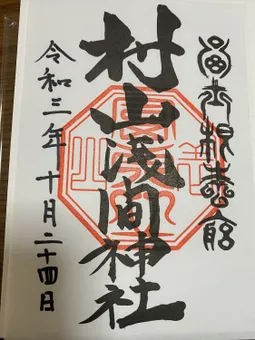 富士根本宮
村山浅間神社
令和三年十月二十四日